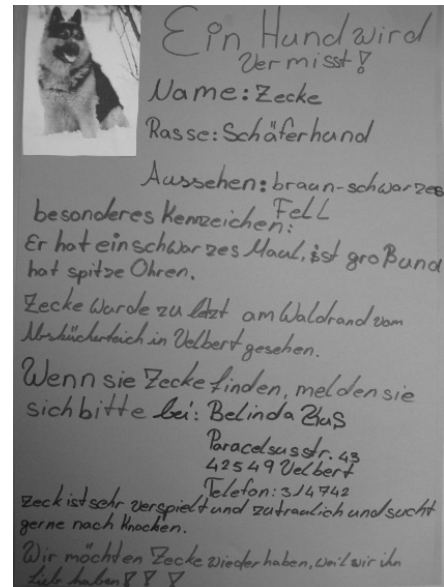 Ein Hund wird
Vermisst!
Name: Zecke
Rasse: Schäferhund
Aussehen: braun-schwarzes
Fell
besonderes Kennzeichen:
Er hat ein schwarzes Maul, ist groß und
hat spitze Ohren.
Zecke wurde zu letzt am Waldrand vom
in Velbert gesehen.
Wenn sie Zecke finden, melden sie
sich bitte bei: Belinda
Paracelsusstr. 43
42549 Velbert
Telefon: 314742
Zeck ist sehr verspielt und zutraulich und sucht
gerne nach Knochen.
Wir möchten Zecke wieder haben, weil wir ihn
Lieb haben!!!